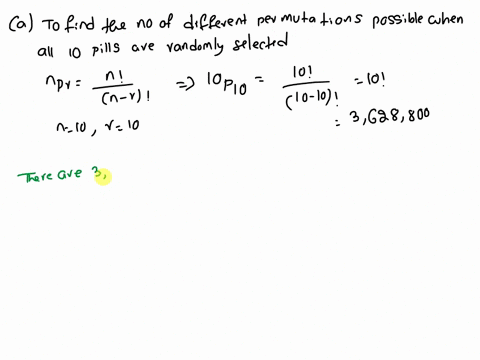 (a) To find the no of different permutations possible when
all 10 pills are randomly selected
nPr = n! / (n-r)! => 10P10 = 10! / (10-10)! = 10!
n=10, r=10 = 3,628,800
There are 3,